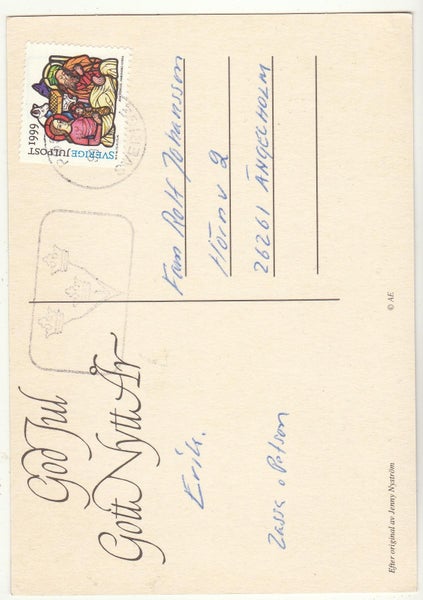 God Jul
Gott Nytt År
Erik.
Zassa o Petson
Fam Rolf Johansson
Hörnv 2
26261 ÄNGELHOLM
SVERIGE JULPOST
1999
Efter original av Jenny Nyström
© AE